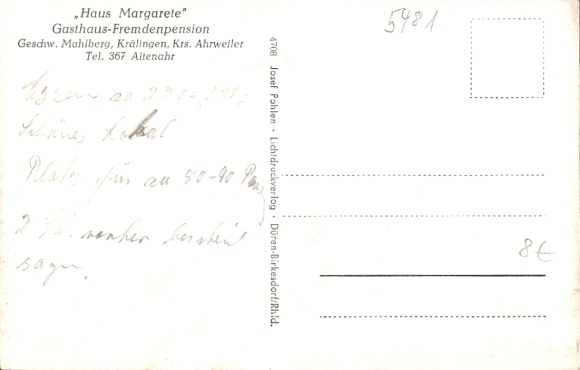 „Haus Margarete"
Gasthaus-Fremdenpension
Geschw. Mahlberg, Krälingen, Krs. Ahrweiler
Tel. 367 Altenahr
Essen zu
schönes Lokal
Platz für zu 80-90
2 vorher bescheid
sagen.
4708 Josef Pohlen · Lichtdruckverlag · Düren-Birkesdorf/Rhld.
5481
8€